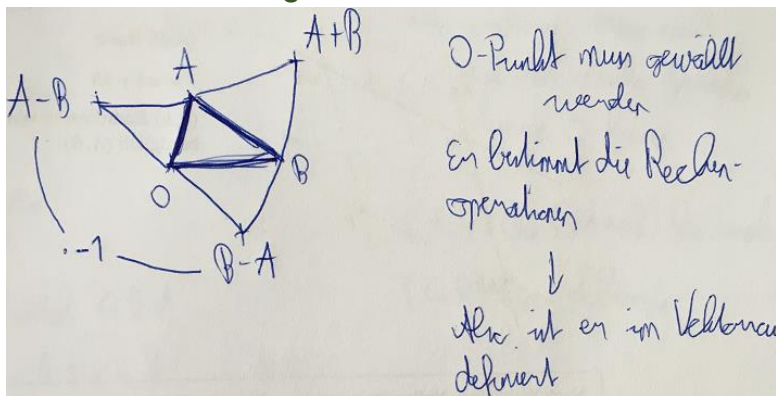 A+B
A
A-B
B
O
·-1
B-A
O-Punkt muss gewählt
werden
Er bestimmt die Rechen-
operationen
↓
Also ist er im Vektorrau
definiert